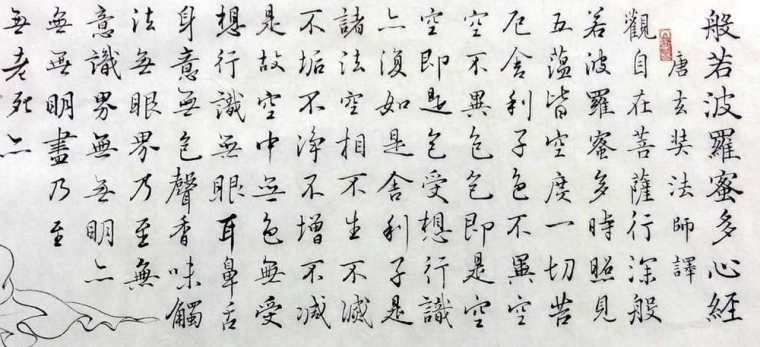 般若波羅蜜多心經
唐玄奘法師譯
觀自在菩薩行深般
若波羅蜜多時照見
五蘊皆空度一切苦
厄舍利子色不異空
空不異色色即是空
空即是色受想行識
亦復如是舍利子是
諸法空相不生不滅
不垢不淨不增不減
是故空中無色無受
想行識無眼耳鼻舌
身意無色聲香味觸
法無眼界乃至無
意識界無無明亦
無無明盡乃至
無老死亦